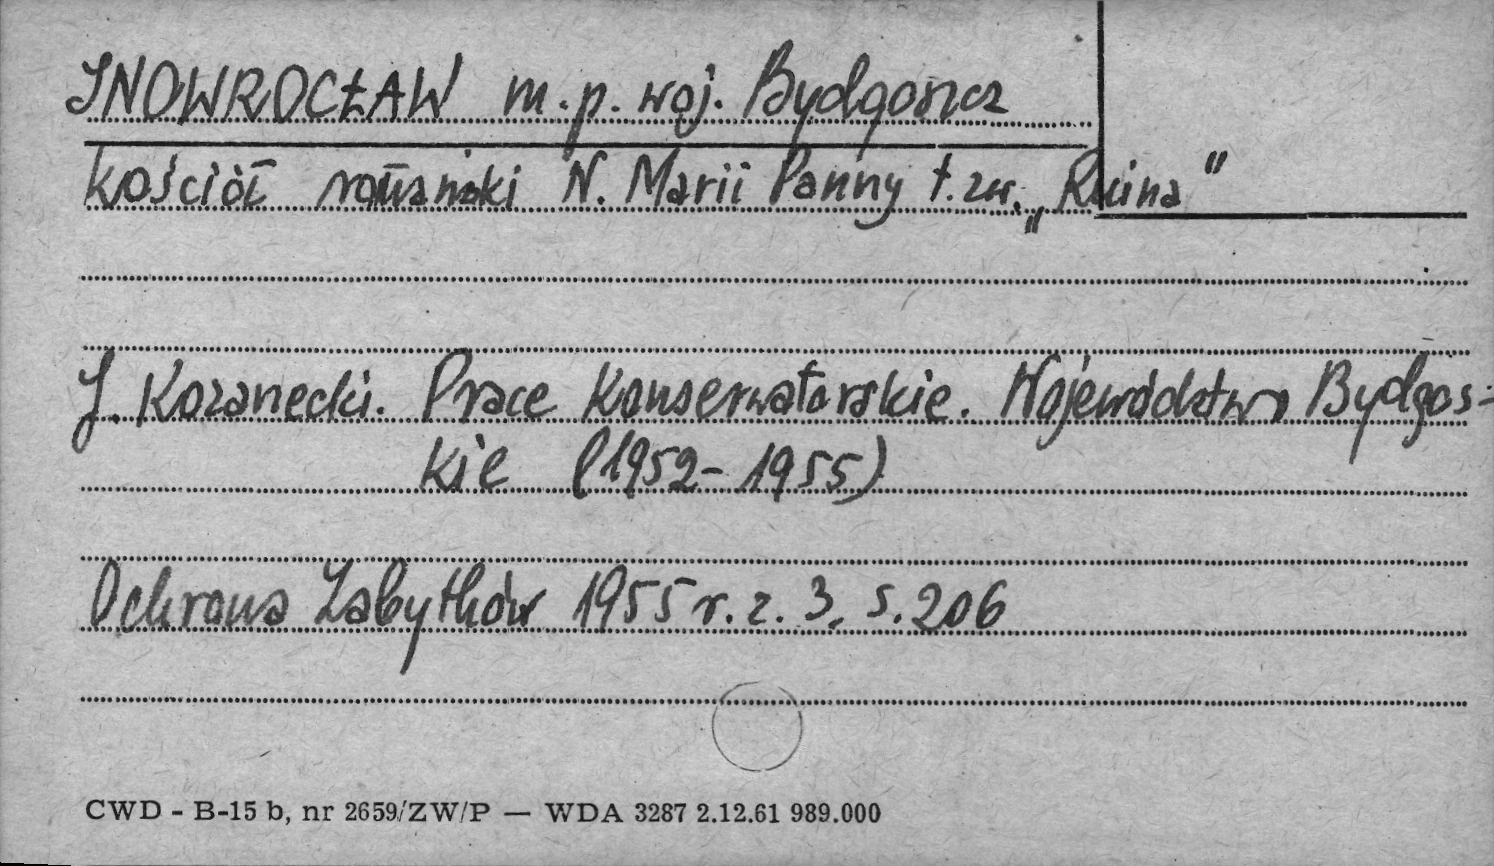 INOWROCŁAW m.p. woj. Bydgoszcz
kościół romański N. Marii Panny t. zw. „Ruina"
J. Kozanecki. Prace Konserwatorskie. Województwo Bydgos-
kie (1952-1955)
Ochrona Zabytków 1955 r. z. 3, s. 206
CWD - B-15 b, nr 2659/ZW/P — WDA 3287 2.12.61 989.000